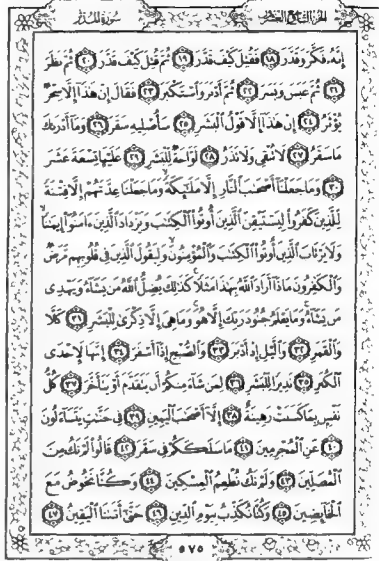 الجزء التاسع والعشرون سورة المدثر
إِنَّهُۥ فَكَّرَ وَقَدَّرَ ١٨ فَقُتِلَ كَيْفَ قَدَّرَ ١٩ ثُمَّ قُتِلَ كَيْفَ قَدَّرَ ٢٠ ثُمَّ نَظَرَ
٢١ ثُمَّ عَبَسَ وَبَسَرَ ٢٢ ثُمَّ أَدْبَرَ وَٱسْتَكْبَرَ ٢٣ فَقَالَ إِنْ هَٰذَآ إِلَّا سِحْرٌ
يُؤْثَرُ ٢٤ إِنْ هَٰذَآ إِلَّا قَوْلُ ٱلْبَشَرِ ٢٥ سَأُصْلِيهِ سَقَرَ ٢٦ وَمَآ أَدْرَىٰكَ
مَا سَقَرُ ٢٧ لَا تُبْقِى وَلَا تَذَرُ ٢٨ لَوَّاحَةٌ لِّلْبَشَرِ ٢٩ عَلَيْهَا تِسْعَةَ عَشَرَ
٣٠ وَمَا جَعَلْنَآ أَصْحَٰبَ ٱلنَّارِ إِلَّا مَلَٰٓئِكَةً وَمَا جَعَلْنَا عِدَّتَهُمْ إِلَّا فِتْنَةً
لِّلَّذِينَ كَفَرُوا۟ لِيَسْتَيْقِنَ ٱلَّذِينَ أُوتُوا۟ ٱلْكِتَٰبَ وَيَزْدَادَ ٱلَّذِينَ ءَامَنُوٓا۟ إِيمَٰنًا
وَلَا يَرْتَابَ ٱلَّذِينَ أُوتُوا۟ ٱلْكِتَٰبَ وَٱلْمُؤْمِنُونَ وَلِيَقُولَ ٱلَّذِينَ فِى قُلُوبِهِم مَّرَضٌ
وَٱلْكَٰفِرُونَ مَاذَآ أَرَادَ ٱللَّهُ بِهَٰذَا مَثَلًا كَذَٰلِكَ يُضِلُّ ٱللَّهُ مَن يَشَآءُ وَيَهْدِى
مَن يَشَآءُ وَمَا يَعْلَمُ جُنُودَ رَبِّكَ إِلَّا هُوَ وَمَا هِىَ إِلَّا ذِكْرَىٰ لِلْبَشَرِ ٣١ كَلَّا
وَٱلْقَمَرِ ٣٢ وَٱلَّيْلِ إِذْ أَدْبَرَ ٣٣ وَٱلصُّبْحِ إِذَآ أَسْفَرَ ٣٤ إِنَّهَا لَإِحْدَى
ٱلْكُبَرِ ٣٥ نَذِيرًا لِّلْبَشَرِ ٣٦ لِمَن شَآءَ مِنكُمْ أَن يَتَقَدَّمَ أَوْ يَتَأَخَّرَ ٣٧ كُلُّ
نَفْسٍۭ بِمَا كَسَبَتْ رَهِينَةٌ ٣٨ إِلَّآ أَصْحَٰبَ ٱلْيَمِينِ ٣٩ فِى جَنَّٰتٍ يَتَسَآءَلُونَ
٤٠ عَنِ ٱلْمُجْرِمِينَ ٤١ مَا سَلَكَكُمْ فِى سَقَرَ ٤٢ قَالُوا۟ لَمْ نَكُ مِنَ
ٱلْمُصَلِّينَ ٤٣ وَلَمْ نَكُ نُطْعِمُ ٱلْمِسْكِينَ ٤٤ وَكُنَّا نَخُوضُ مَعَ
ٱلْخَآئِضِينَ ٤٥ وَكُنَّا نُكَذِّبُ بِيَوْمِ ٱلدِّينِ ٤٦ حَتَّىٰٓ أَتَىٰنَا ٱلْيَقِينُ ٤٧
٥٧٥